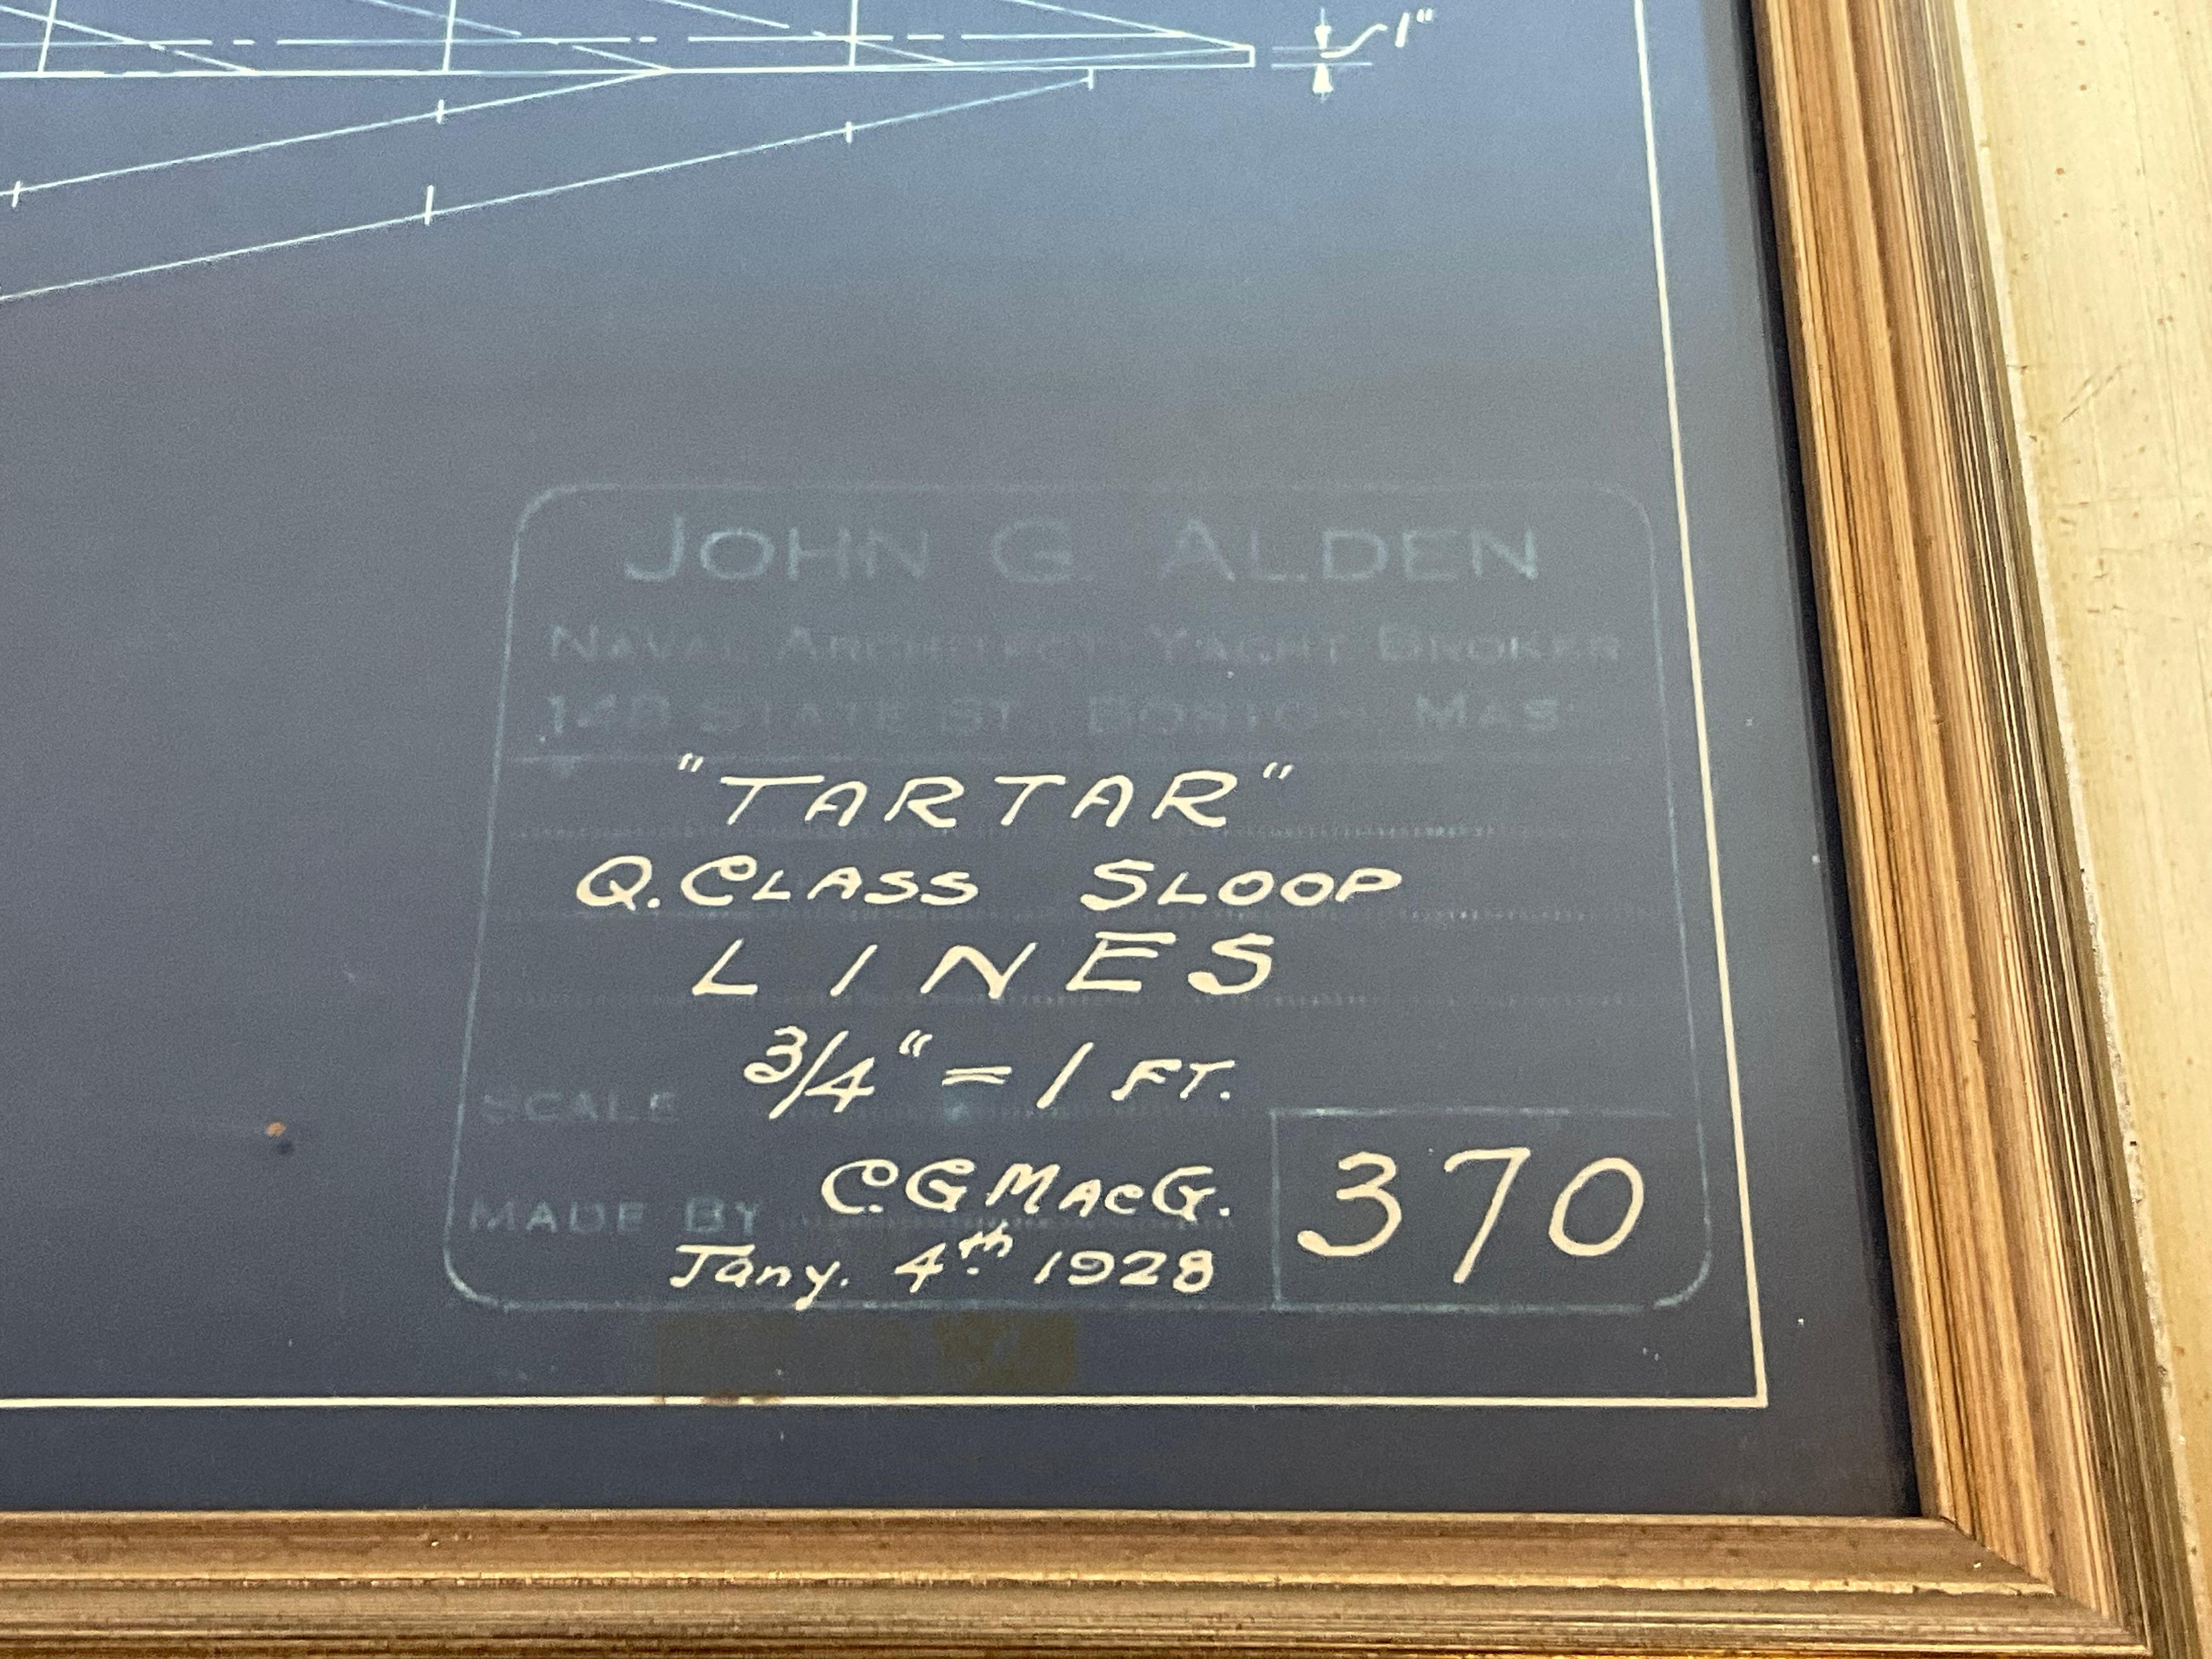 1"
JOHN G. ALDEN
NAVAL ARCHITECT YACHT BROKER
148 STATE ST. BOSTON MAS
"TARTAR"
Q. CLASS SLOOP
LINES
SCALE 3/4" = 1 FT.
MADE BY C.G MACG.
Jany. 4th 1928
370